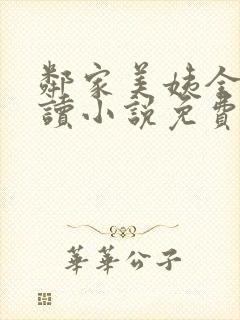 鄰家美姨全
讀小說免費
華華公子